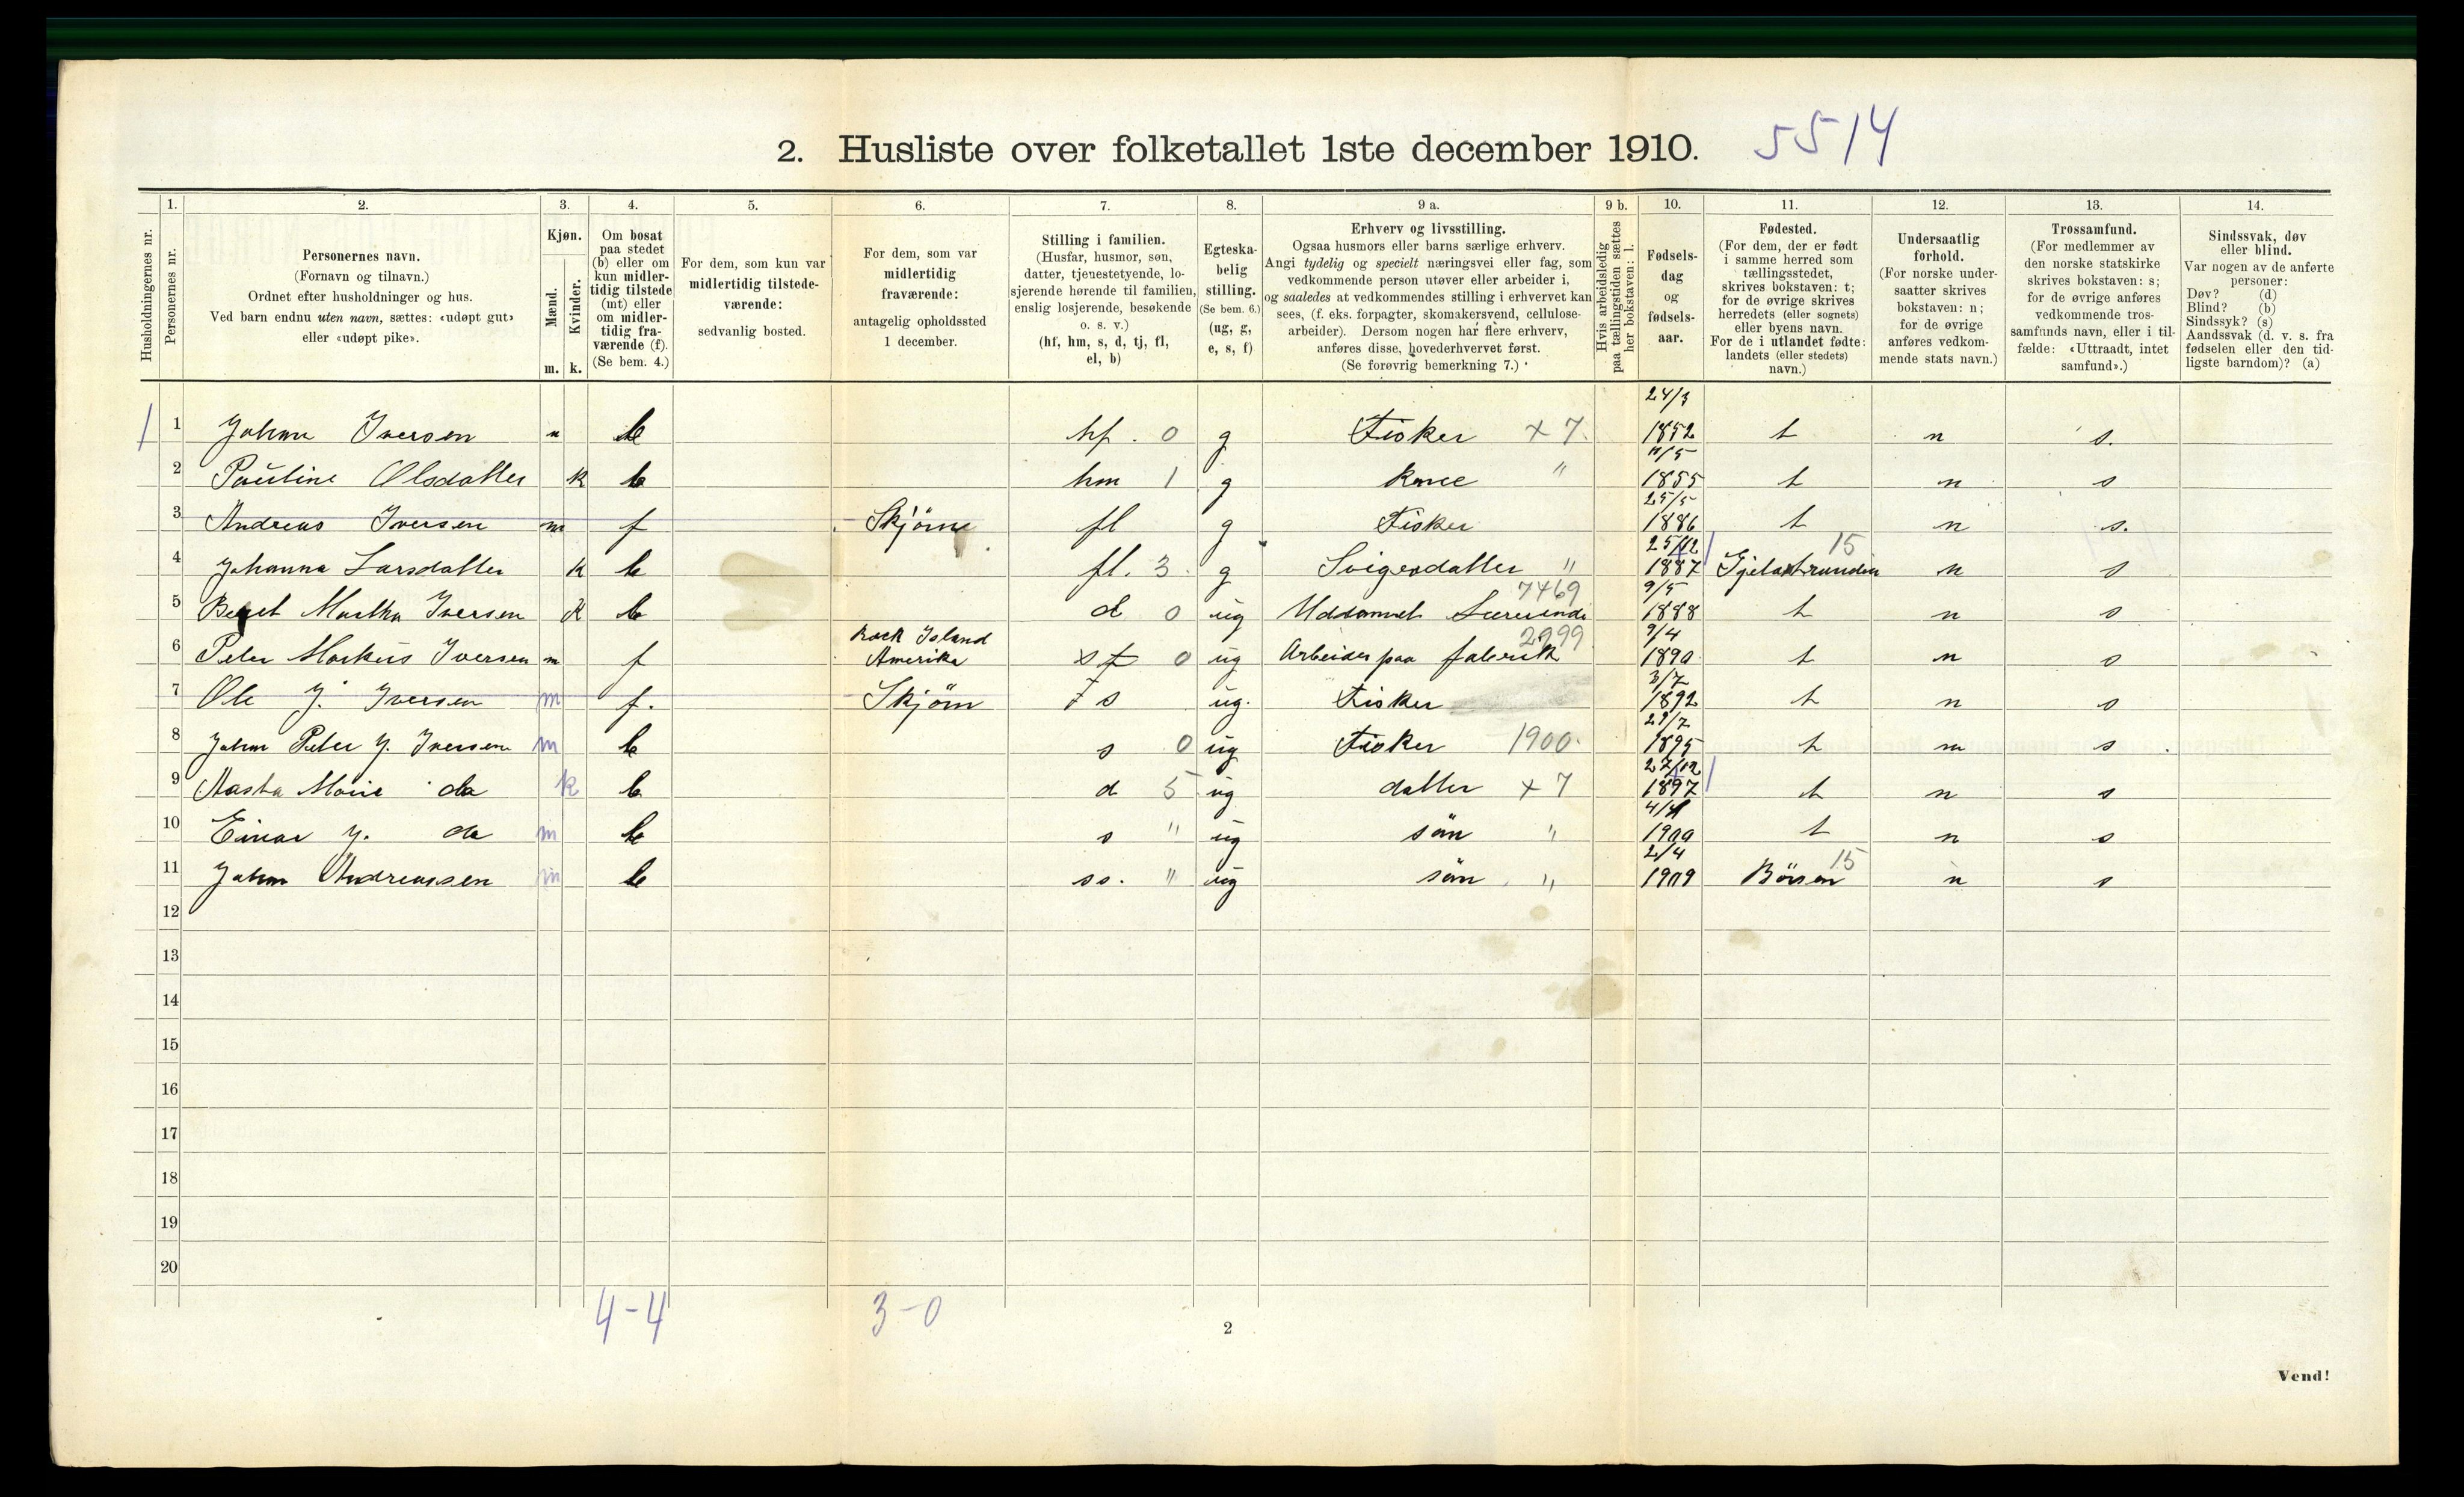 2. Husliste over folketallet 1ste december 1910. 5514
Husholdningernes nr.
1. Personernes nr.
2. Personernes navn.
(Fornavn og tilnavn.)
Ordnet efter husholdninger og hus.
Ved barn endnu uten navn, sættes: «udøpt gut»
eller «udøpt pike».
3. Kjøn.
Mænd. Kvinder.
m. k.
4. Om bosat
paa stedet
(b) eller om
kun midler-
tidig tilstede
(mt) eller
om midler-
tidig fra-
værende (f).
(Se bem. 4.)
5. For dem, som kun var
midlertidig tilstede-
værende:
sedvanlig bosted.
6. For dem, som var
midlertidig
fraværende:
antagelig opholdssted
1 december.
7. Stilling i familien.
(Husfar, husmor, søn,
datter, tjenestetyende, lo-
sjerende hørende til familien,
enslig losjerende, besøkende
o. s. v.)
(hf, hm, s, d, tj, fl,
el, b)
8. Egteska-
belig
stilling.
(Se bem. 6.)
(ug, g,
e, s, f)
9 a. Erhverv og livsstilling.
Ogsaa husmors eller barns særlige erhverv.
Angi tydelig og specielt næringsvei eller fag, som
vedkommende person utøver eller arbeider i,
og saaledes at vedkommendes stilling i erhvervet kan
sees, (f. eks. forpagter, skomakersvend, cellulose-
arbeider). Dersom nogen har flere erhverv,
anføres disse, hovederhvervet først.
(Se forøvrig bemerkning 7.)
9 b. Hvis arbeidsledig
paa tællingstiden sættes
her bokstaven: l.
10. Fødsels-
dag
og
fødsels-
aar.
11. Fødested.
(For dem, der er født
i samme herred som
tællingsstedet,
skrives bokstaven: t;
for de øvrige skrives
herredets (eller sognets)
eller byens navn.
For de i utlandet fødte:
landets (eller stedets)
navn.)
12. Undersaatlig
forhold.
(For norske under-
saatter skrives
bokstaven: n;
for de øvrige
anføres vedkom-
mende stats navn.)
13. Trossamfund.
(For medlemmer av
den norske statskirke
skrives bokstaven: s;
for de øvrige anføres
vedkommende tros-
samfunds navn, eller i til-
fælde: «Uttraadt, intet
samfund».)
14. Sindssvak, døv
eller blind.
Var nogen av de anførte
personer:
Døv? (d)
Blind? (b)
Sindssyk? (s)
Aandssvak (d. v. s. fra
fødselen eller den tid-
ligste barndom)? (a)
1 1 Johan Iversen m b hf. 0 g Fisker x 7. 24/3 1852 t n s.
2 Pauline Olsdatter k b hm 1 g kone " 11/5 1855 t n s
3 Andreas Iversen m f Skjörn fl g Fisker 25/5 1886 t n s.
4 Johanna Larsdatter k b fl. 3 g Svigerdatter " 25/12 1887 Gjelastranden 15 n s
5 Beret Martha Iversen k b d 0 ug Uddannet Lærerinde 7469 9/5 1888 t n s
6 Peter Markus Iversen m f Rock Island Amerika s f 0 ug Arbeider paa fabrik 2999 9/4 1890 t n s
7 Ole J. Iversen m f. Skjörn f s ug. Fisker 3/7 1892 t n s
8 Johan Peter J. Iversen m b s 0 ug Fisker 1900. 29/7 1895 t n s
9 Aasta Marie do k b d 5 ug datter x 7 27/12 1897 t n s
10 Einar J. do m b s " ug sön " 4/4 1900 t n s
11 Johan Andreassen m b ss. " ug sön " 2/4 1909 Börsen 15 n s
12
13
14
15
16
17
18
19
20
4-4 3-0
2
Vend!